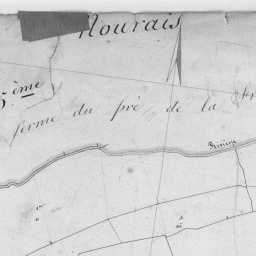 Nourais
5.ème
ferme du pré de la
Rivière